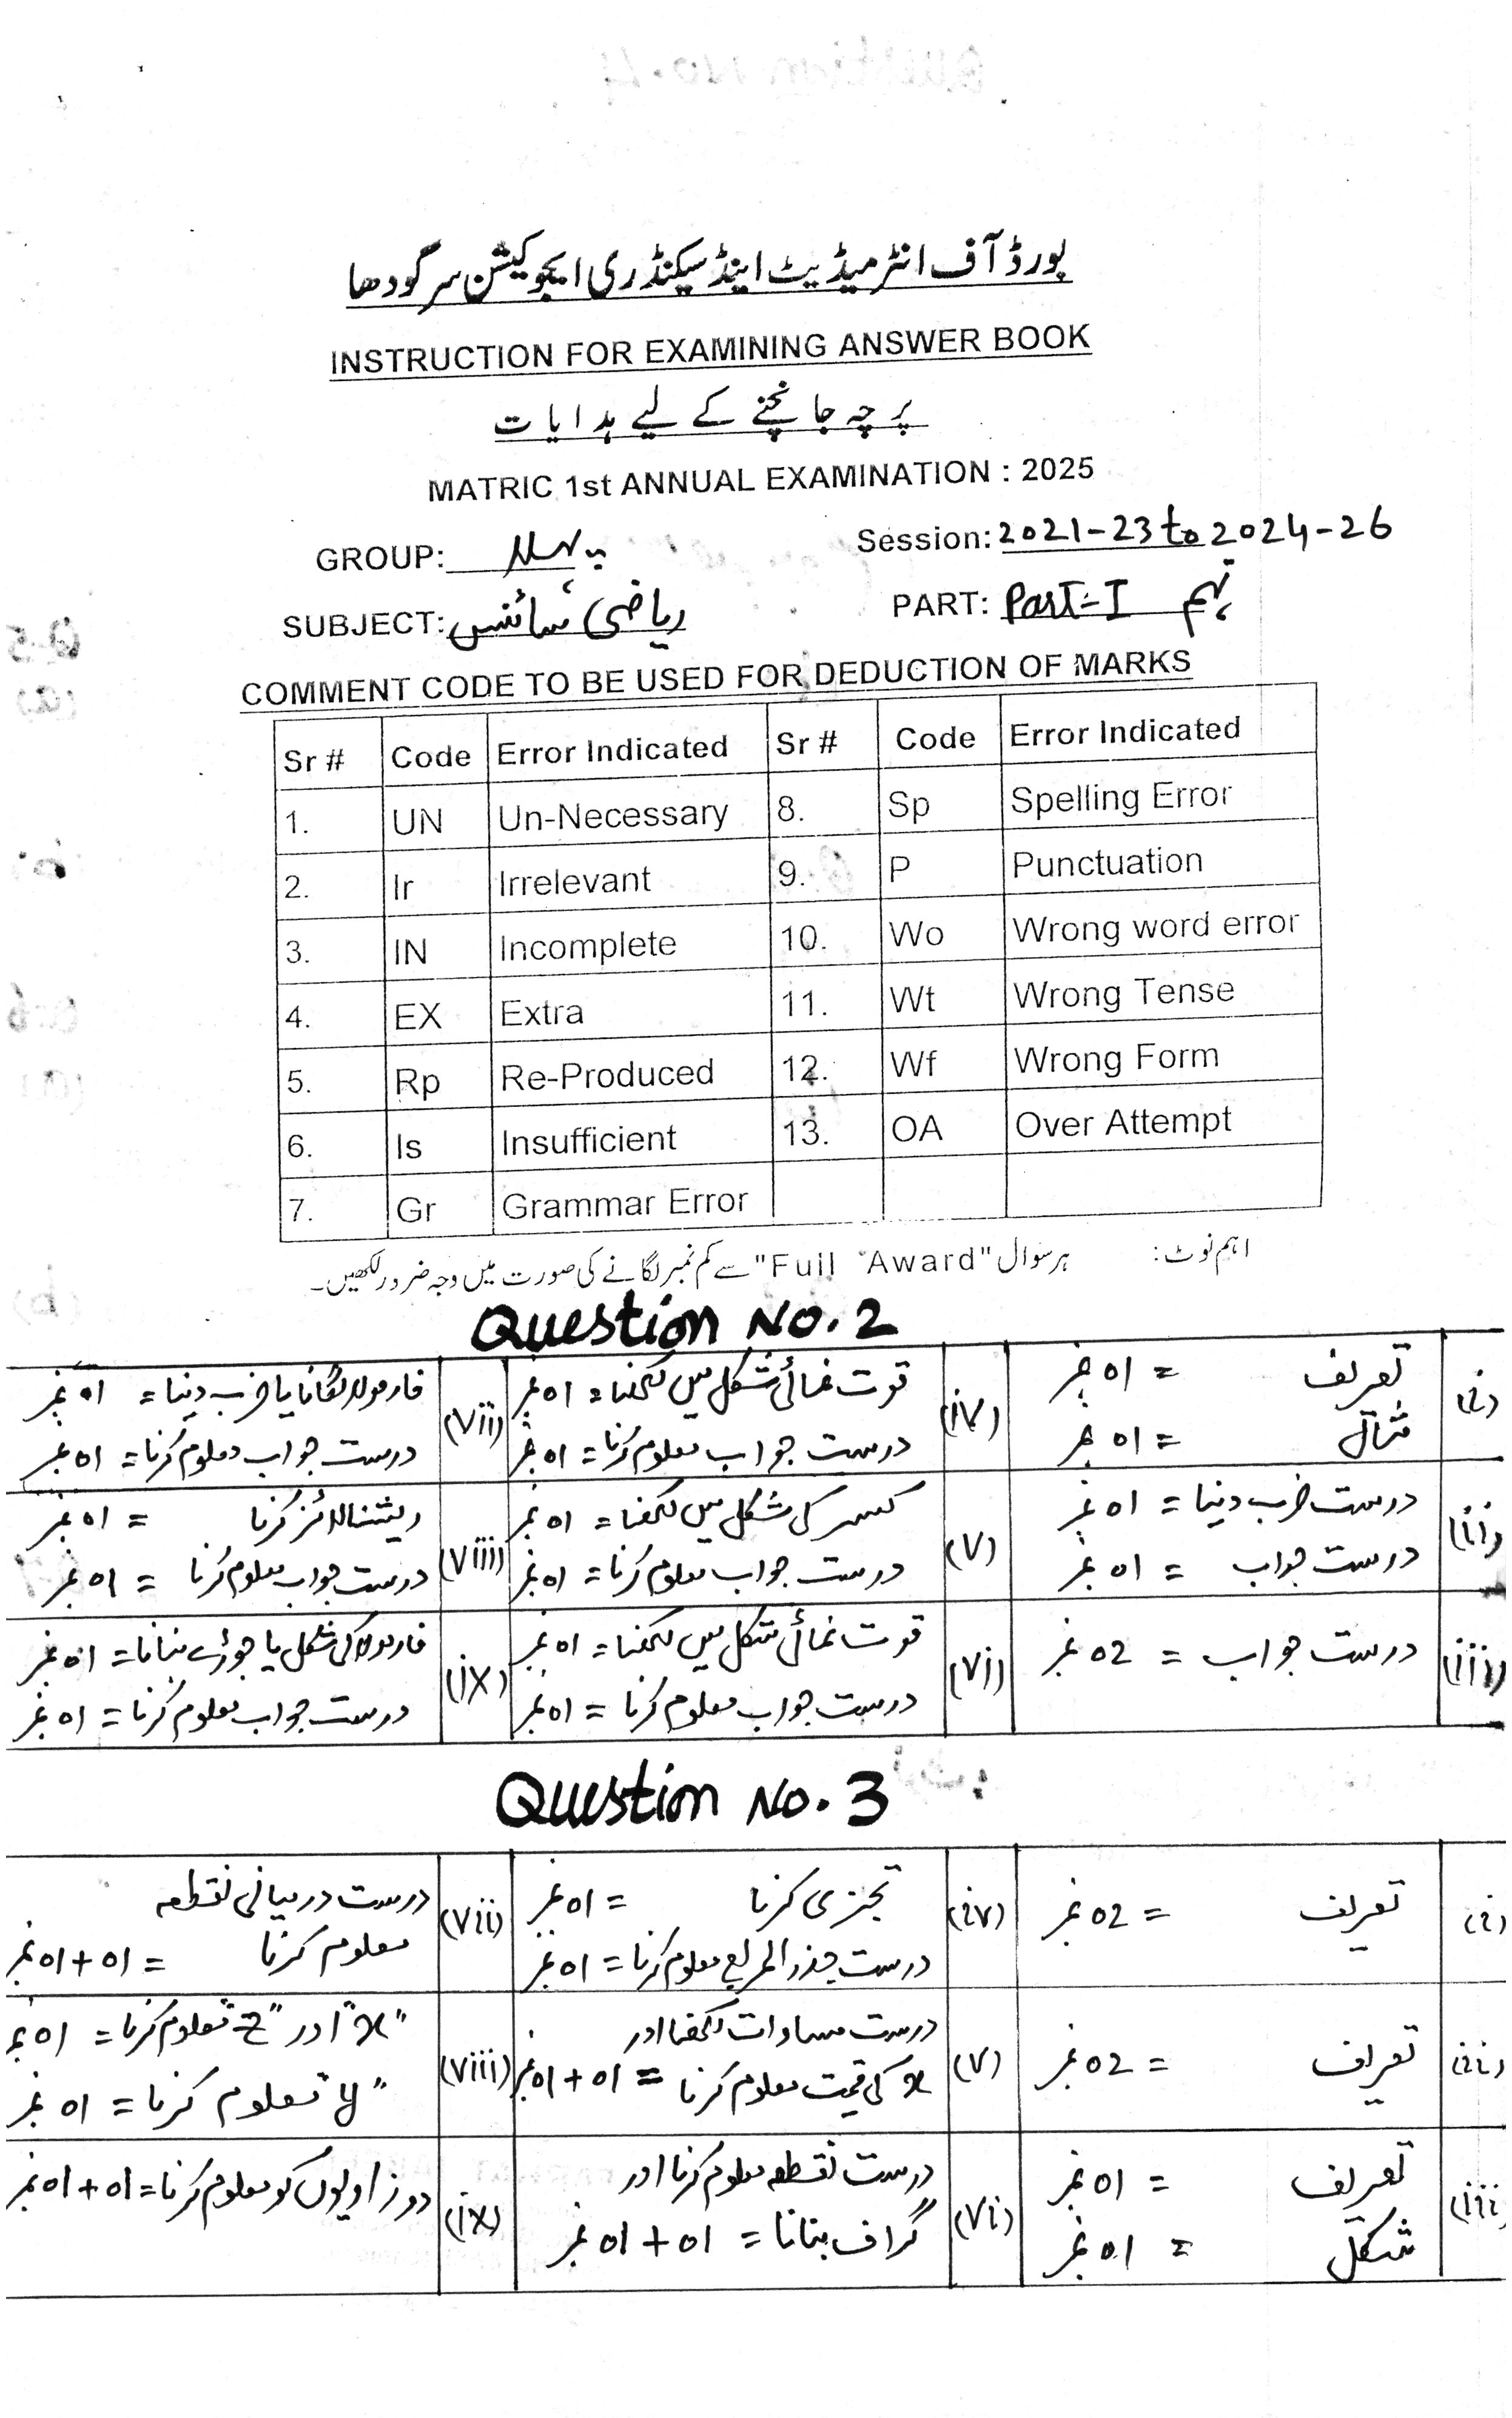 بورڈ آف انٹرمیڈیٹ اینڈ سیکنڈری ایجوکیشن سرگودھا
INSTRUCTION FOR EXAMINING ANSWER BOOK
پرچہ جانچنے کے لیے ہدایات
MATRIC 1st ANNUAL EXAMINATION : 2025
GROUP: پہلا Session: 2021-23 to 2024-26
SUBJECT: ریاضی سائنس PART: Part-I نہم
COMMENT CODE TO BE USED FOR DEDUCTION OF MARKS
Sr # Code Error Indicated Sr # Code Error Indicated
1. UN Un-Necessary 8. Sp Spelling Error
2. Ir Irrelevant 9. P Punctuation
3. IN Incomplete 10. Wo Wrong word error
4. EX Extra 11. Wt Wrong Tense
5. Rp Re-Produced 12. Wf Wrong Form
6. Is Insufficient 13. OA Over Attempt
7. Gr Grammar Error
اہم نوٹ: ہر سوال "Full Award" سے کم نمبر لگانے کی صورت میں وجہ ضرور لکھیں۔
Question No. 2
(i) تعریف = 01 نمبر
مثال = 01 نمبر
(iv) قوت نمائی شکل میں لکھنا = 01 نمبر
درست جواب معلوم کرنا = 01 نمبر
(vii) فارمولا لگانا یا ضرب دینا = 01 نمبر
درست جواب معلوم کرنا = 01 نمبر
(ii) درست ضرب دینا = 01 نمبر
درست جواب = 01 نمبر
(v) کسر کی شکل میں لکھنا = 01 نمبر
درست جواب معلوم کرنا = 01 نمبر
(viii) ریشنالائز کرنا = 01 نمبر
درست جواب معلوم کرنا = 01 نمبر
(iii) درست جواب = 02 نمبر
(vi) قوت نمائی شکل میں لکھنا = 01 نمبر
درست جواب معلوم کرنا = 01 نمبر
(ix) فارمولا کی شکل یا جوڑے بنانا = 01 نمبر
درست جواب معلوم کرنا = 01 نمبر
Question No. 3
(i) تعریف = 02 نمبر
(iv) تجزی کرنا = 01 نمبر
درست جذرالمربع معلوم کرنا = 01 نمبر
(vii) درست درمیانی نقطہ
معلوم کرنا = 01 + 01 نمبر
(ii) تعریف = 02 نمبر
(v) درست مساوات لکھنا اور
x کی قیمت معلوم کرنا = 01 + 01 نمبر
(viii) "x" اور "z" معلوم کرنا = 01 نمبر
"y" معلوم کرنا = 01 نمبر
(iii) تعریف = 01 نمبر
شکل = 01 نمبر
(vi) درست نقطہ معلوم کرنا اور
گراف بنانا = 01 + 01 نمبر
(ix) دو زاویوں کو معلوم کرنا = 01 + 01 نمبر